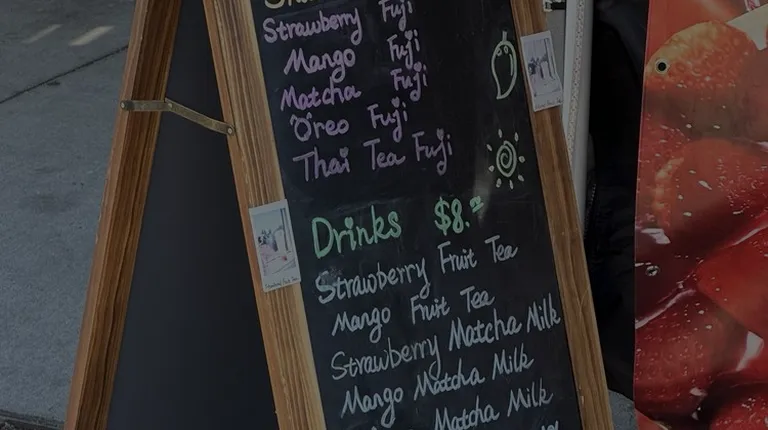 Strawberry Fuji
Mango Fuji
Matcha Fuji
Oreo Fuji
Thai Tea Fuji
Drinks $8.
Strawberry Fruit Tea
Mango Fruit Tea
Strawberry Matcha Milk
Mango Matcha Milk
Matcha Milk